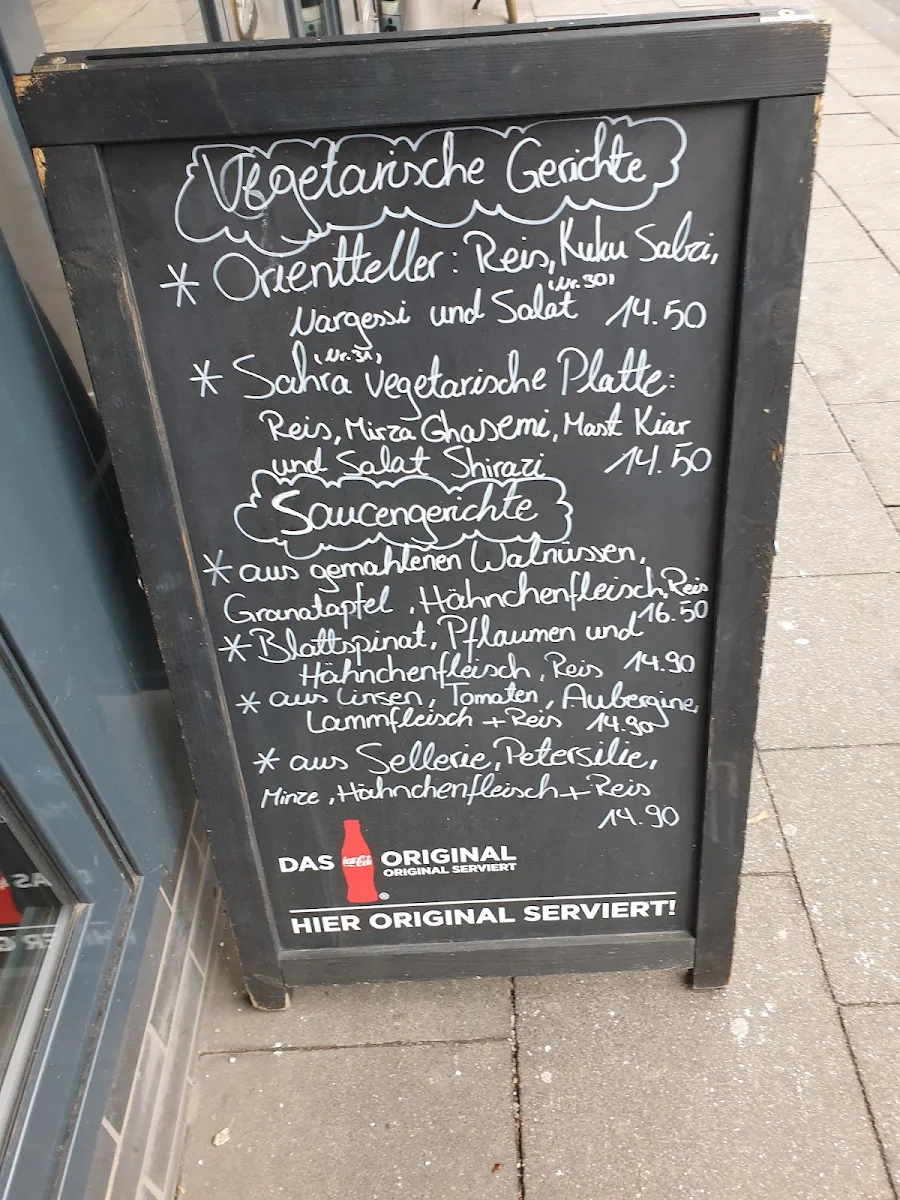 Vegetarische Gerichte
* Orientteller: Reis, Kuku Sabzi,
(Nr.30)
Nargessi und Salat 14.50
(Nr.31)
* Sahra vegetarische Platte:
Reis, Mirza Ghasemi, Mast Kiar
und Salat Shirazi 14.50
Saucengerichte
* aus gemahlenen Walnüssen,
Granatapfel, Hähnchenfleisch, Reis
16.50
* Blattspinat, Pflaumen und
Hähnchenfleisch, Reis 14.90
* aus Linsen, Tomaten, Aubergine,
Lammfleisch + Reis 14.90
* aus Sellerie, Petersilie,
Minze, Hähnchenfleisch + Reis
14.90
DAS Coca-Cola ORIGINAL
ORIGINAL SERVIERT
HIER ORIGINAL SERVIERT!